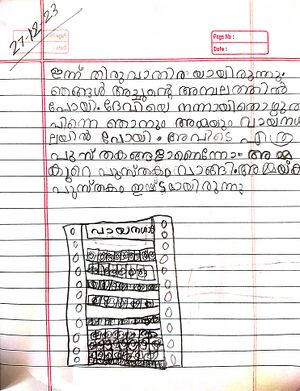 27-12-23
Page No :
Date :
ഇന്ന് തിരുവാതിര യായിരുന്നു.
ഞങ്ങൾ അച്ചന്റെ അമ്പലത്തിൽ
പോയി. ദേവിയെ നന്നായിതൊഴുത
പിന്നെ ഞാനും അമ്മയും വായനശ
ലയിൽ പോയി. അവിടെ എത്ര
പുസ്തകങ്ങളാണെന്നോ. അമ്മ
കുറെ പുസ്തകം വാങ്ങി. അമ്മയ്ക
പുസ്തകം ഇഷ്ടമായിരുന്നു
വായനശാല